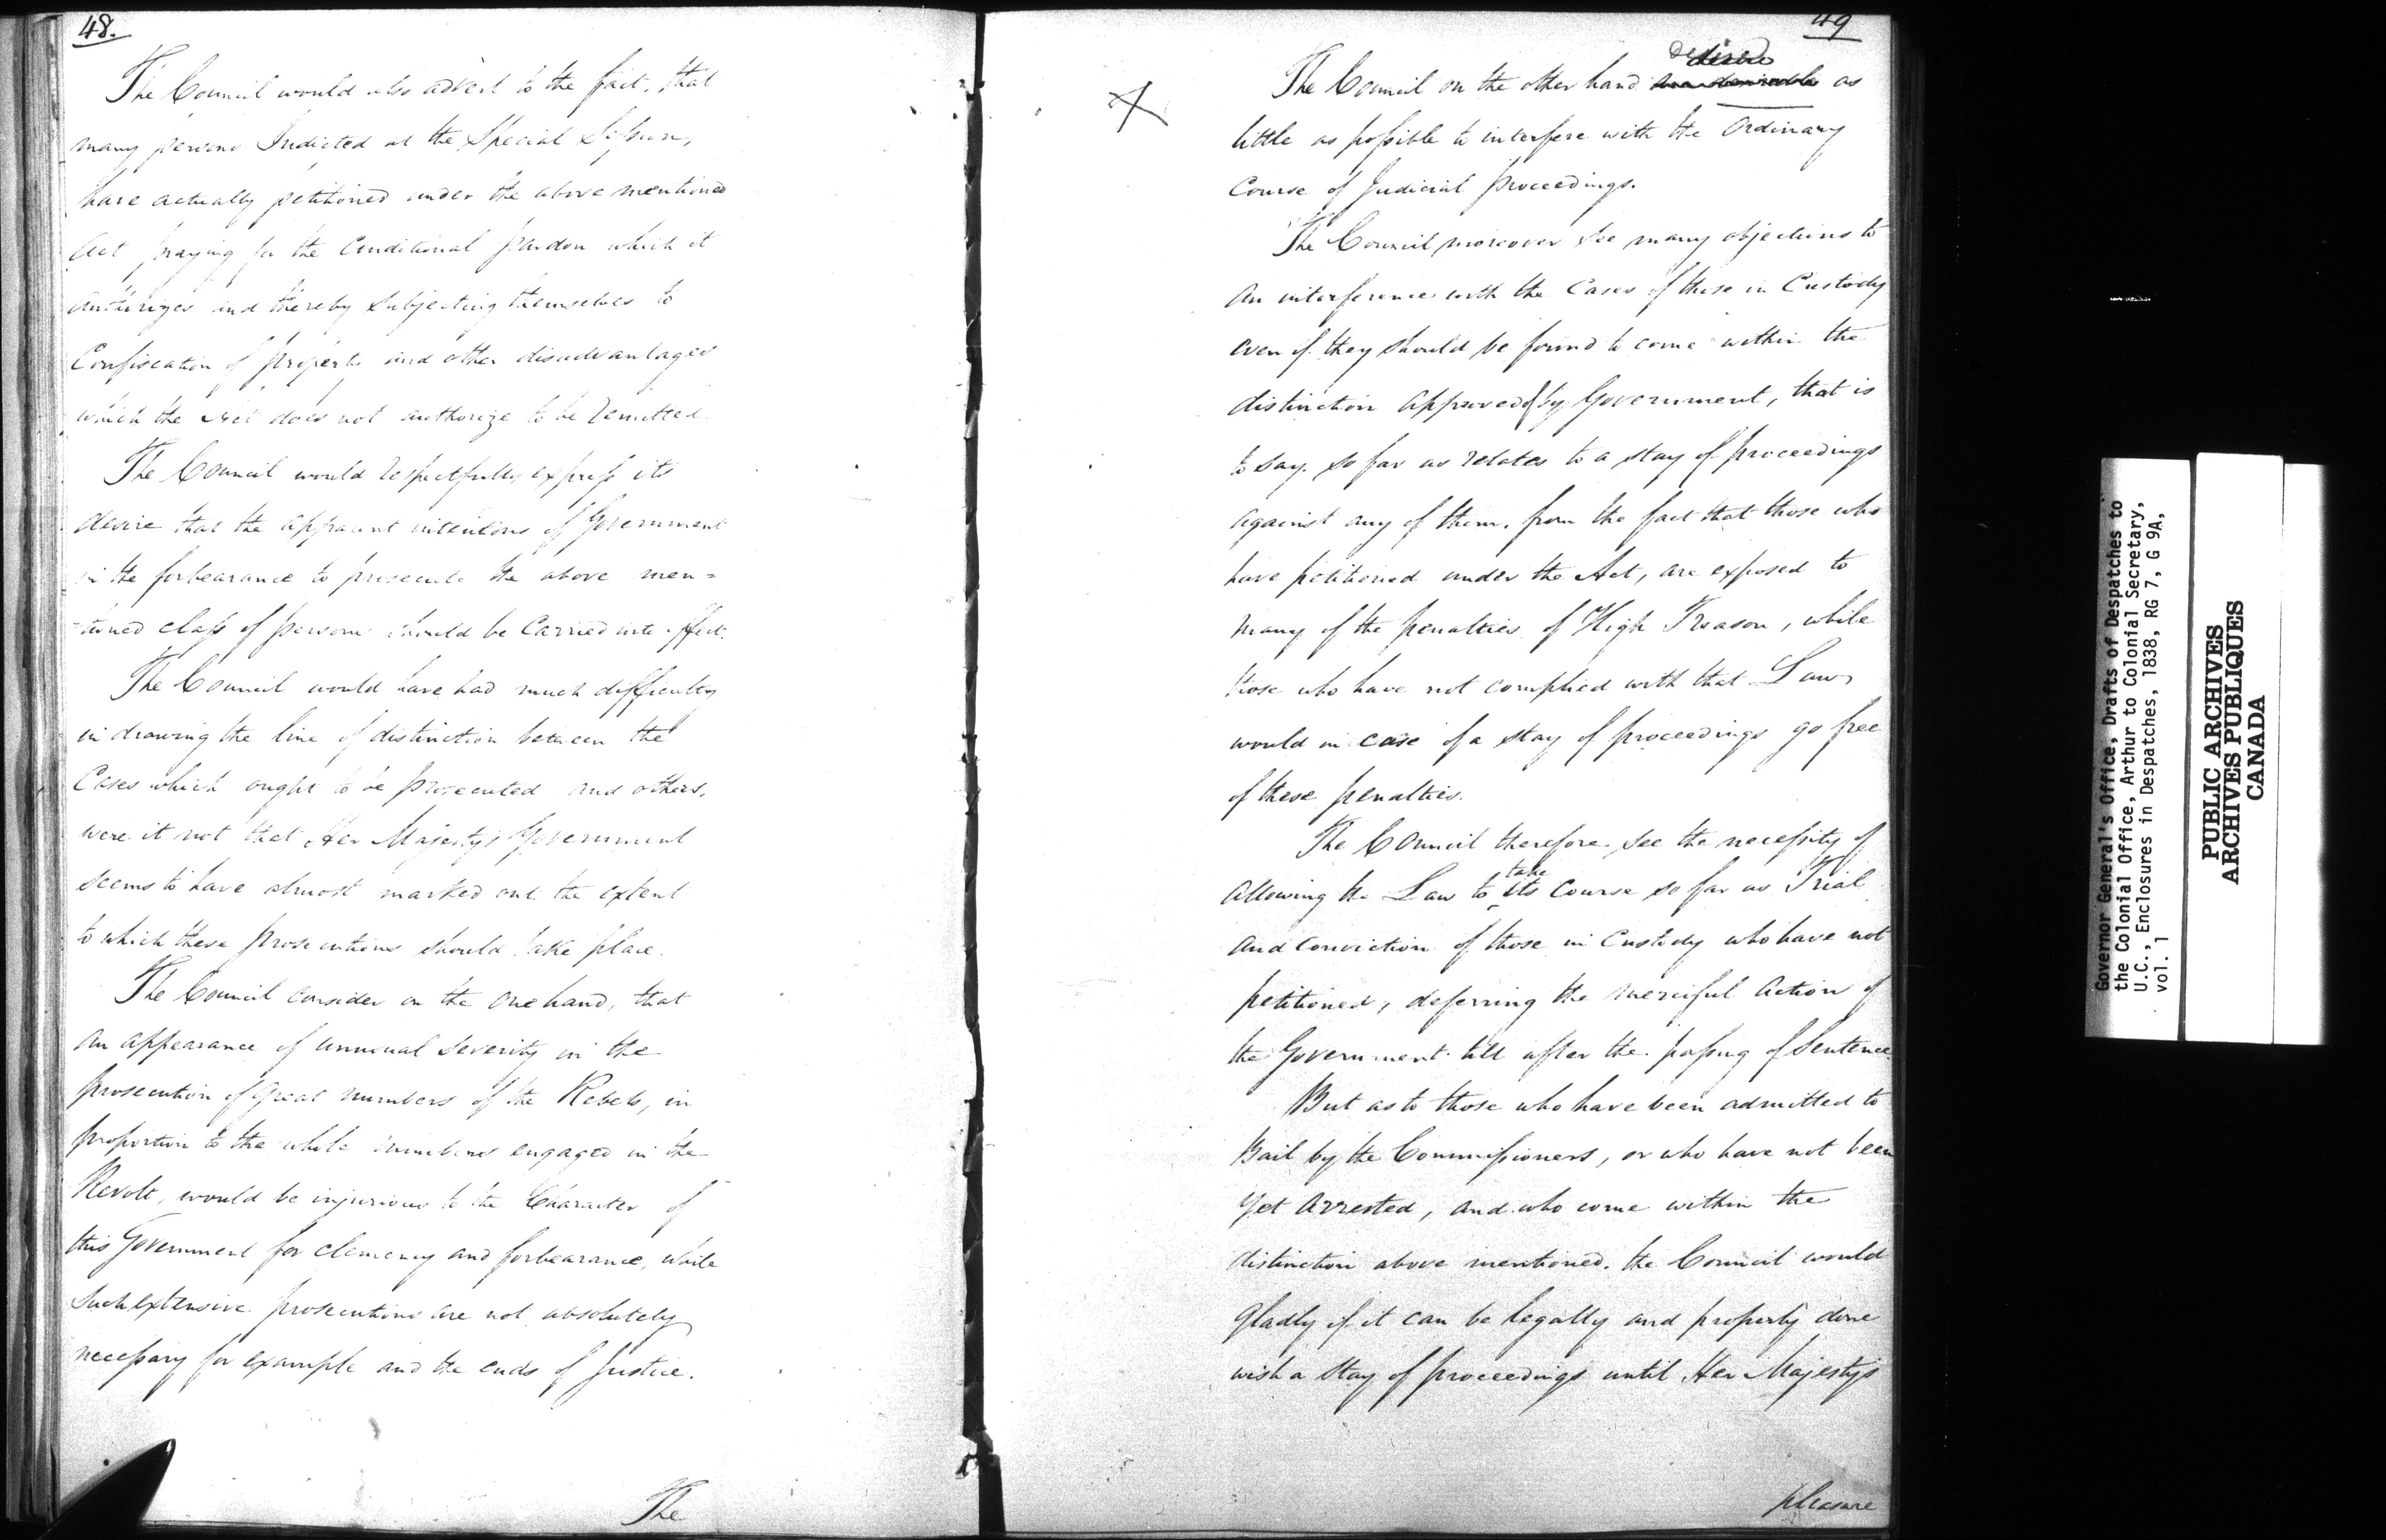 48.
The Council would also advert to the fact, that
many persons Indicted at the Special Session,
have actually petitioned under the above mentioned
Act praying for the Conditional pardon which it
authorizes and thereby subjecting themselves to
Confiscation of property and other disadvantages
which the Act does not authorize to be remitted.
The Council would respectfully express its
desire that the apparent intentions of Government
in the forbearance to prosecute the above men=
=tioned class of persons should be Carried into effect.
The Council would have had much difficulty
in drawing the line of distinction between the
Cases which ought to be prosecuted and others,
were it not that Her Majesty's Government
seems to have almost marked out the extent
to which these prosecutions should take place.
The Council consider on the one hand, that
an appearance of unusual severity in the
prosecution of great numbers of the Rebels, in
proportion to the whole numbers engaged in the
Revolt, would be injurious to the Character of
this Government for clemency and forbearance, while
such extensive prosecutions are not absolutely
necessary for example and the ends of Justice.
The
49
desire
The Council on the other hand as
little as possible to interfere with the Ordinary
Course of Judicial proceedings.
The Council moreover see many objections to
an interference with the Cases of those in Custody
even if they should be found to come within the
distinction approved by Government, that is
to say so far as relates to a stay of proceedings
against any of them, from the fact that those who
have petitioned under the Act, are exposed to
many of the penalties of High Treason, while
those who have not complied with that Law
would in case of a stay of proceedings go free
of these penalties.
The Council therefore see the necessity of
allowing the Law to take its Course so far as Trial
and Conviction of those in Custody who have not
petitioned, deferring the merciful Action of
the Government till after the passing of Sentence.
But as to those who have been admitted to
Bail by the Commissioners, or who have not been
yet Arrested, and who come within the
distinction above mentioned, the Council would
gladly if it can be legally and properly done
wish a stay of proceedings until Her Majesty's
pleasure
Governor General's Office, Drafts of Despatches to
the Colonial Office, Arthur to Colonial Secretary,
U.C., Enclosures in Despatches, 1838, RG 7, G 9A,
vol. 1
PUBLIC ARCHIVES
ARCHIVES PUBLIQUES
CANADA